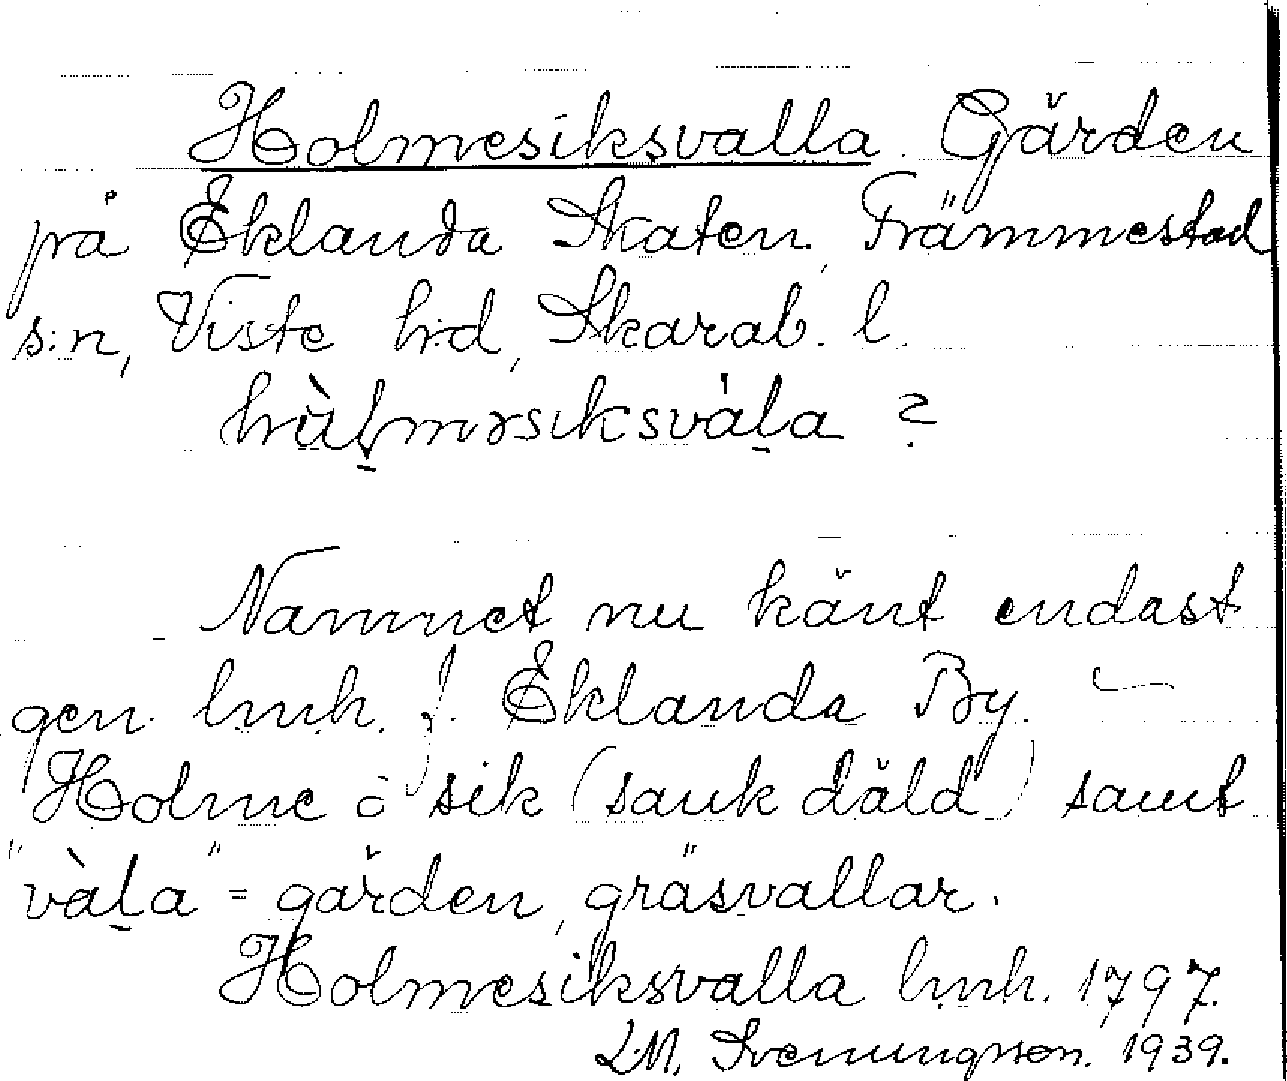 Holmesiksvalla. Gärden
på Eklanda Skaten, Främmestad
s:n, Viste hrd, Skarab. l.
hùl̠mɘsiksvàl̠a ?
Namnet nu känt endast
gen. lmh. f. Eklanda By. –
Holme o sik (sank däld) samt
"vàl̠a" = gärden, gräsvallar.
Holmesiksvalla lmh. 1797.
L.M. Svenungsson. 1939.